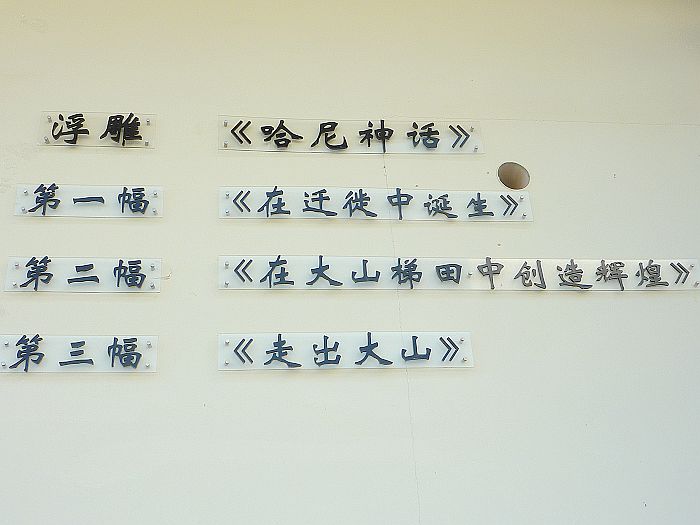 浮雕 《哈尼神话》
第一幅 《在迁徙中诞生》
第二幅 《在大山梯田中创造辉煌》
第三幅 《走出大山》